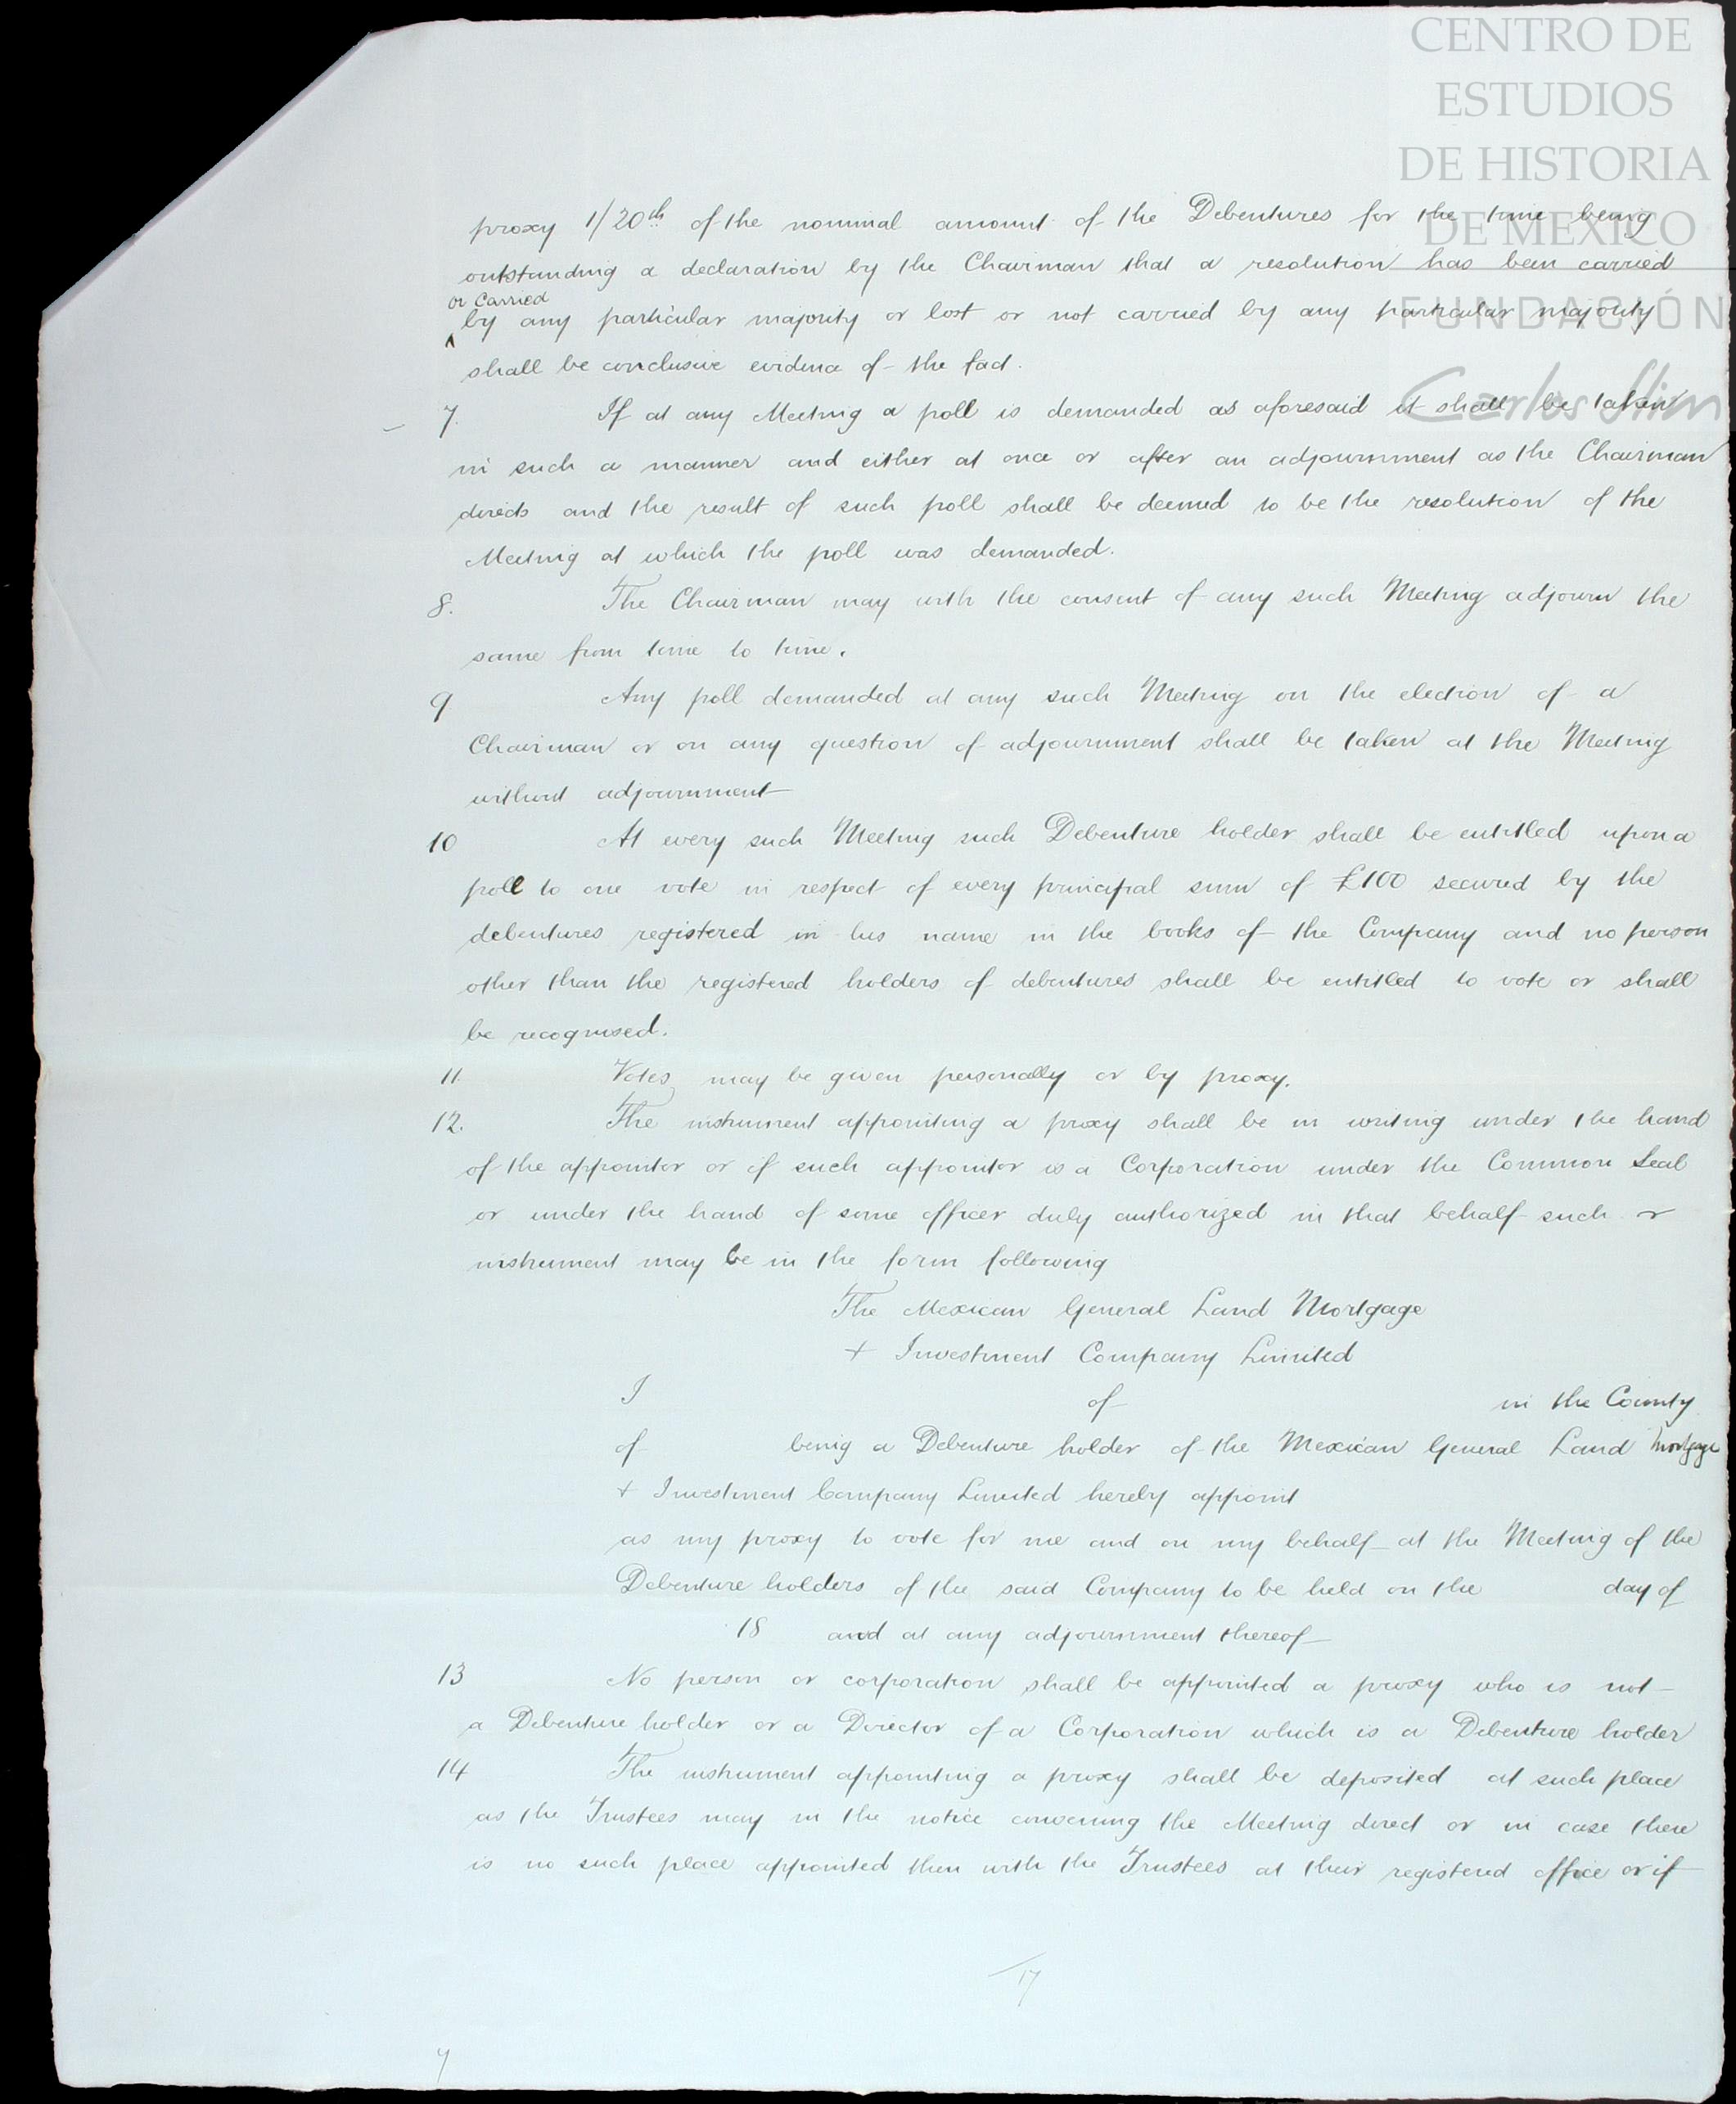 CENTRO DE
ESTUDIOS
DE HISTORIA
DE MEXICO
FUNDACIÓN
Carlos Slim
proxy 1/20th of the nominal amount of the Debentures for the time being
outstanding a declaration by the Chairman that a resolution has been carried
or carried
by any particular majority or lost or not carried by any particular majority
shall be conclusive evidence of the fact.
7. If at any Meeting a poll is demanded as aforesaid it shall be taken
in such a manner and either at once or after an adjournment as the Chairman
directs and the result of such poll shall be deemed to be the resolution of the
Meeting at which the poll was demanded.
8. The Chairman may with the consent of any such Meeting adjourn the
same from time to time.
9 Any poll demanded at any such Meeting on the election of a
Chairman or on any question of adjournment shall be taken at the Meeting
without adjournment
10 At every such Meeting such Debenture holder shall be entitled upon a
poll to one vote in respect of every principal sum of £100 secured by the
debentures registered in his name in the books of the Company and no person
other than the registered holders of debentures shall be entitled to vote or shall
be recognised.
11 Votes may be given personally or by proxy.
12. The instrument appointing a proxy shall be in writing under the hand
of the appointor or if such appointor is a Corporation under the Common Seal
or under the hand of some officer duly authorized in that behalf such
instrument may be in the form following
The Mexican General Land Mortgage
+ Investment Company Limited
I of in the County
of being a Debenture holder of the Mexican General Land Mortgage
+ Investment Company Limited hereby appoint
as my proxy to vote for me and on my behalf at the Meeting of the
Debenture holders of the said Company to be held on the day of
18 and at any adjournment thereof
13 No person or corporation shall be appointed a proxy who is not
a Debenture holder or a Director of a Corporation which is a Debenture holder
14 The instrument appointing a proxy shall be deposited at such place
as the Trustees may in the notice convening the Meeting direct or in case there
is no such place appointed then with the Trustees at their registered office or if
17